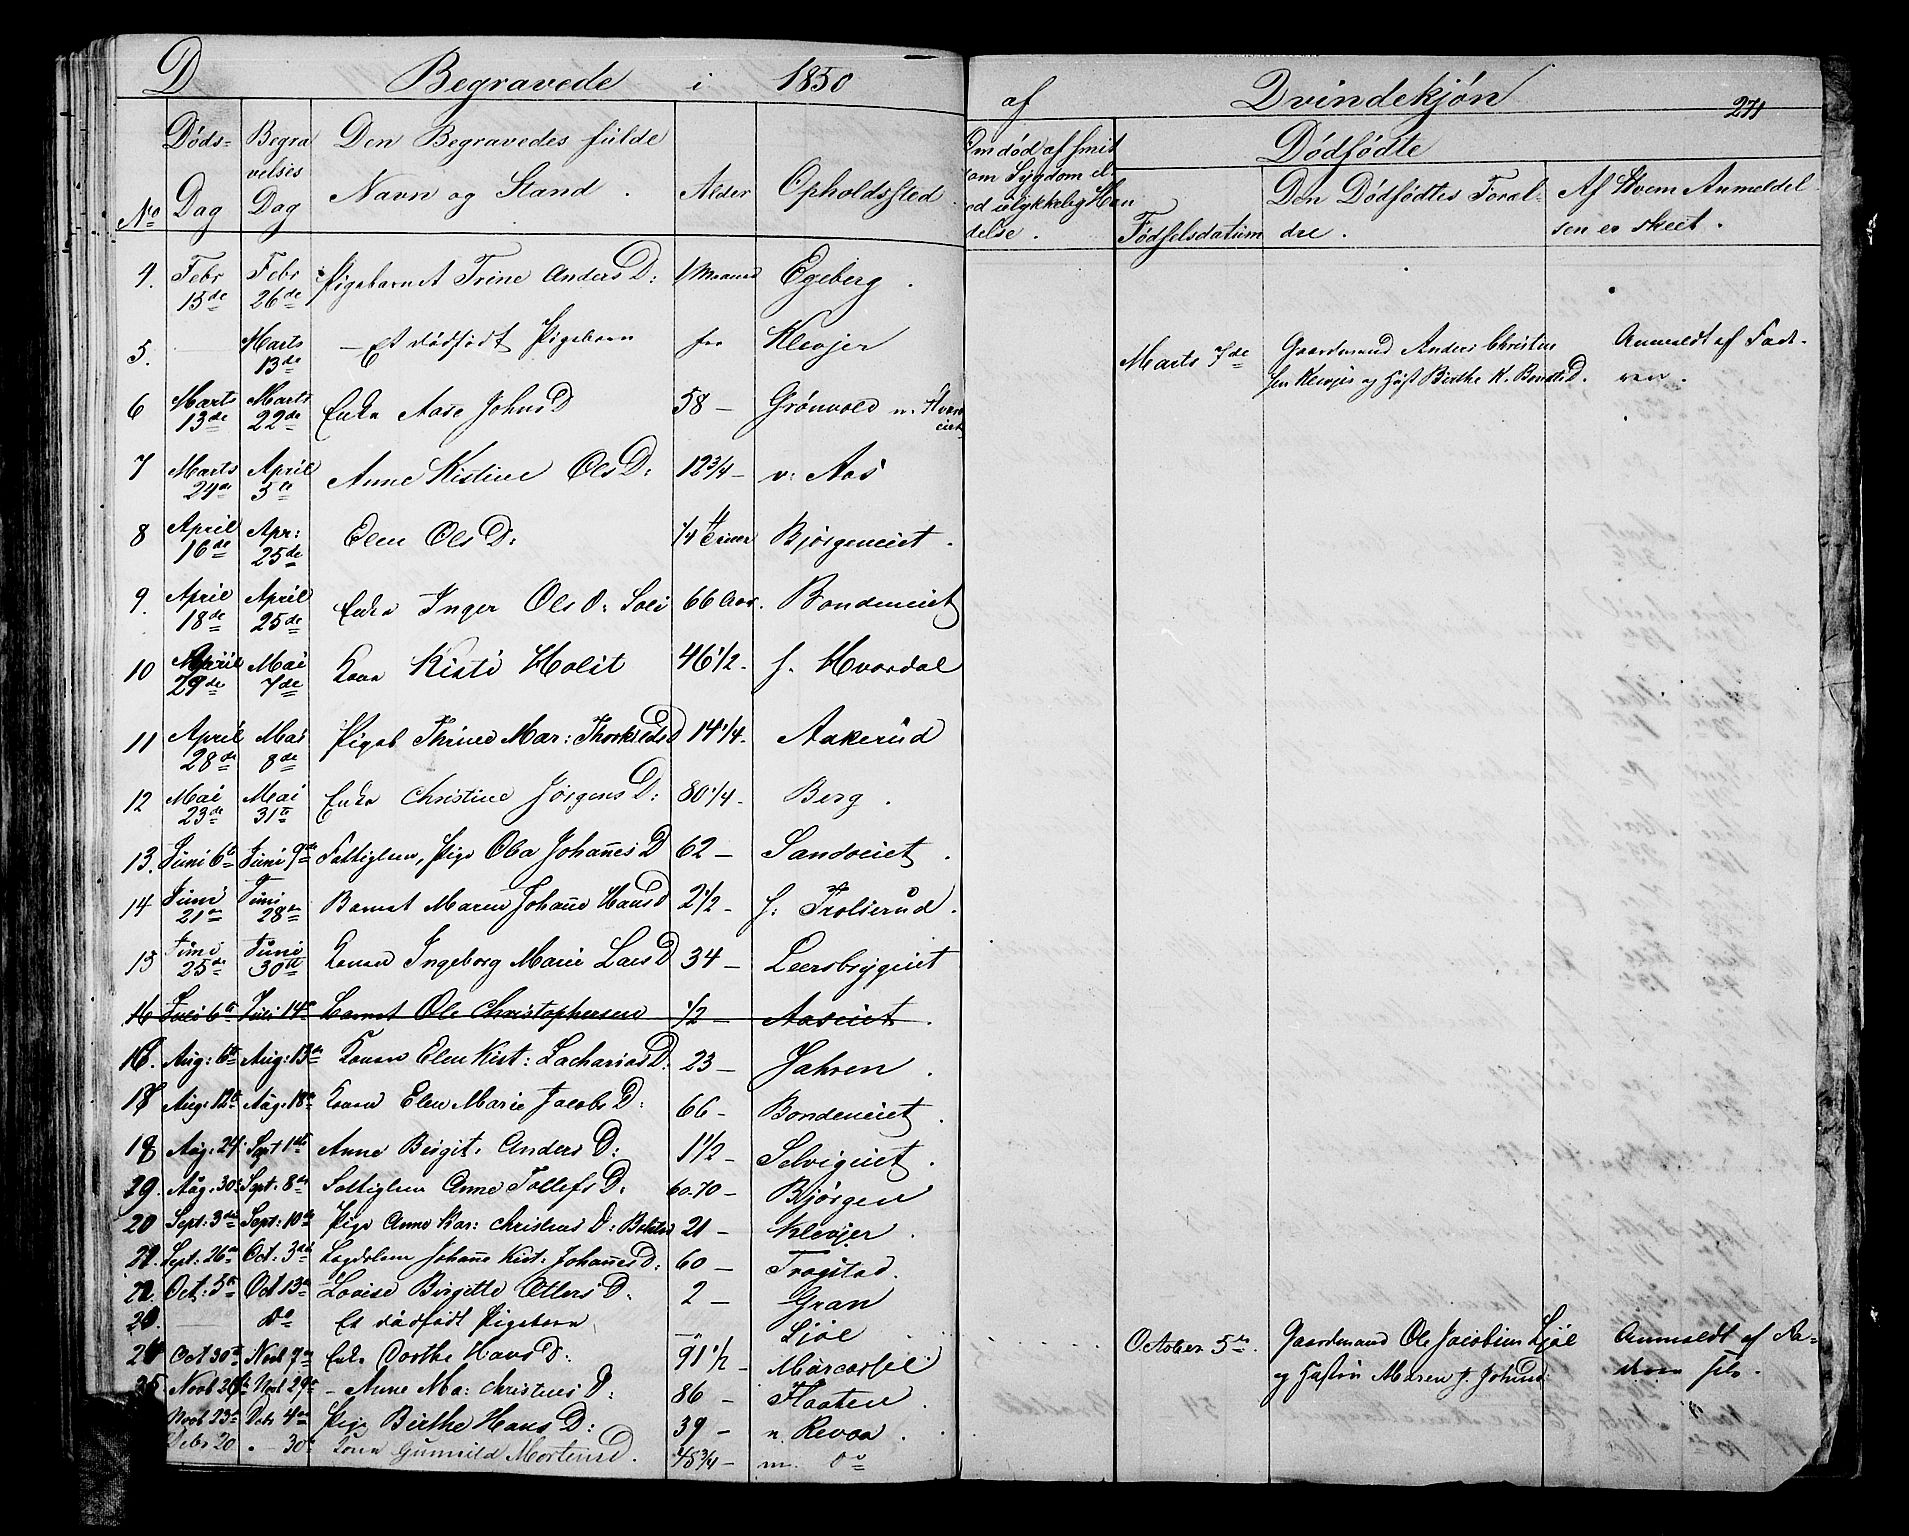 D Begravede i 1850 af Qvindekjön 271
No Döds- Dag Begra velses Dag Den Begravedes fulde Navn og Stand. Alder Opholdssted
Om död af smit som Sygdom el. ved ulykkelig Hæn delse.
Dödfödte
Födselsdatum Den Dödfödtes Foræl- dre. Af Hvem Anmeldel- sen er skeet.
4. Febr 15de Febr 26de Pigebarnet Trine Anders D: 1 Maaned Egeberg.
5. — Marts 13de — Et dödfödt Pigebarn fra Klevjer Marts 7de Gaardmand Anders Christen sen Klevjer og Birthe K. Anmeldt af Fad- ren.
6 Marts 13de Marts 22de Enke Aase Johns D 58 — Grönvold
7 Marts 24de April 5te Anne Kistine Ols D: 12 3/4 — v: Aas
8 April 16de Apr: 25de Elen Ols D: 1/4 Björgeneiet.
9. April 18de April 25de Enke Inger Ols D: 66 Aar. Bondeneiet
10 April 29de Mai 7de Kone Kisti Holit 46 1/2 - s. Hvardal
11 April 28de Mai 8de Pigeb Thrine Mar: Thorkilds D 14 1/4 - Aakerud
12 Mai 23de Mai 31te Enke Christine Jörgens D: 80 1/4 - Berg.
13. Juni 6te Juni 9de Fattiglem, Pige Oba Johanes D 62 — Sandveiet.
14 Juni 21de Juni 28de Barnet Maren Johane Hans D 2 1/2 — s: Trolserud.
15 Juni 25de Juni 30te Konen Ingeborg Marie Lars D 34 — Leersbrygeiet
16 Juli 6te Juli 14de Barnet Ole Christophersen 1/2 — Aaseiet.
16. Aug: 6te Aug: 13de Konen Elen Kist: Zacharias D: 23 — Jahren.
Aug: 12te Aug: 18de Konen Elen Marie Jacobs D: 66 — Bondeneiet.
18 Aug: 24 Sept 1ste Anne Birgit: Anders D: 1 1/2 — Selvigeiet.
Aug: 30 Sept: 8de Fattiglem Anne Tollefs D: 60-70 — Björgen
20 Sept: 3die Sept: 10de Pige Anne Kar: Christens D: 21 — Klevjer.
Sept: 26de Oct: 3die Lægdslem Johane Kist: Johanes D: 60 — Trogstad.
22 Oct: 5te Oct 13de Lovise Birgitte Otters D: 2 — Gran
— Do Et dödfödt Pigebarn — Ljöe October 5te Gaardmand Ole Jacobsen Ljöe og Hustru Maren J. Anmeldt af Fa- deren selv.
Oct 30te Novbr 7de Enke Dorthe Hans D: 91 1/2 —
Novbr Novbr 29de — Anne Ma: Christens D: 86 — Flaaten.
Novbr 23de Debr 4de Pige Birthe Hans D: 39 — n. Revaa.
Debr 20 " — 30te Kone Gunnild Mortens D. 48 3/4 — m. Do